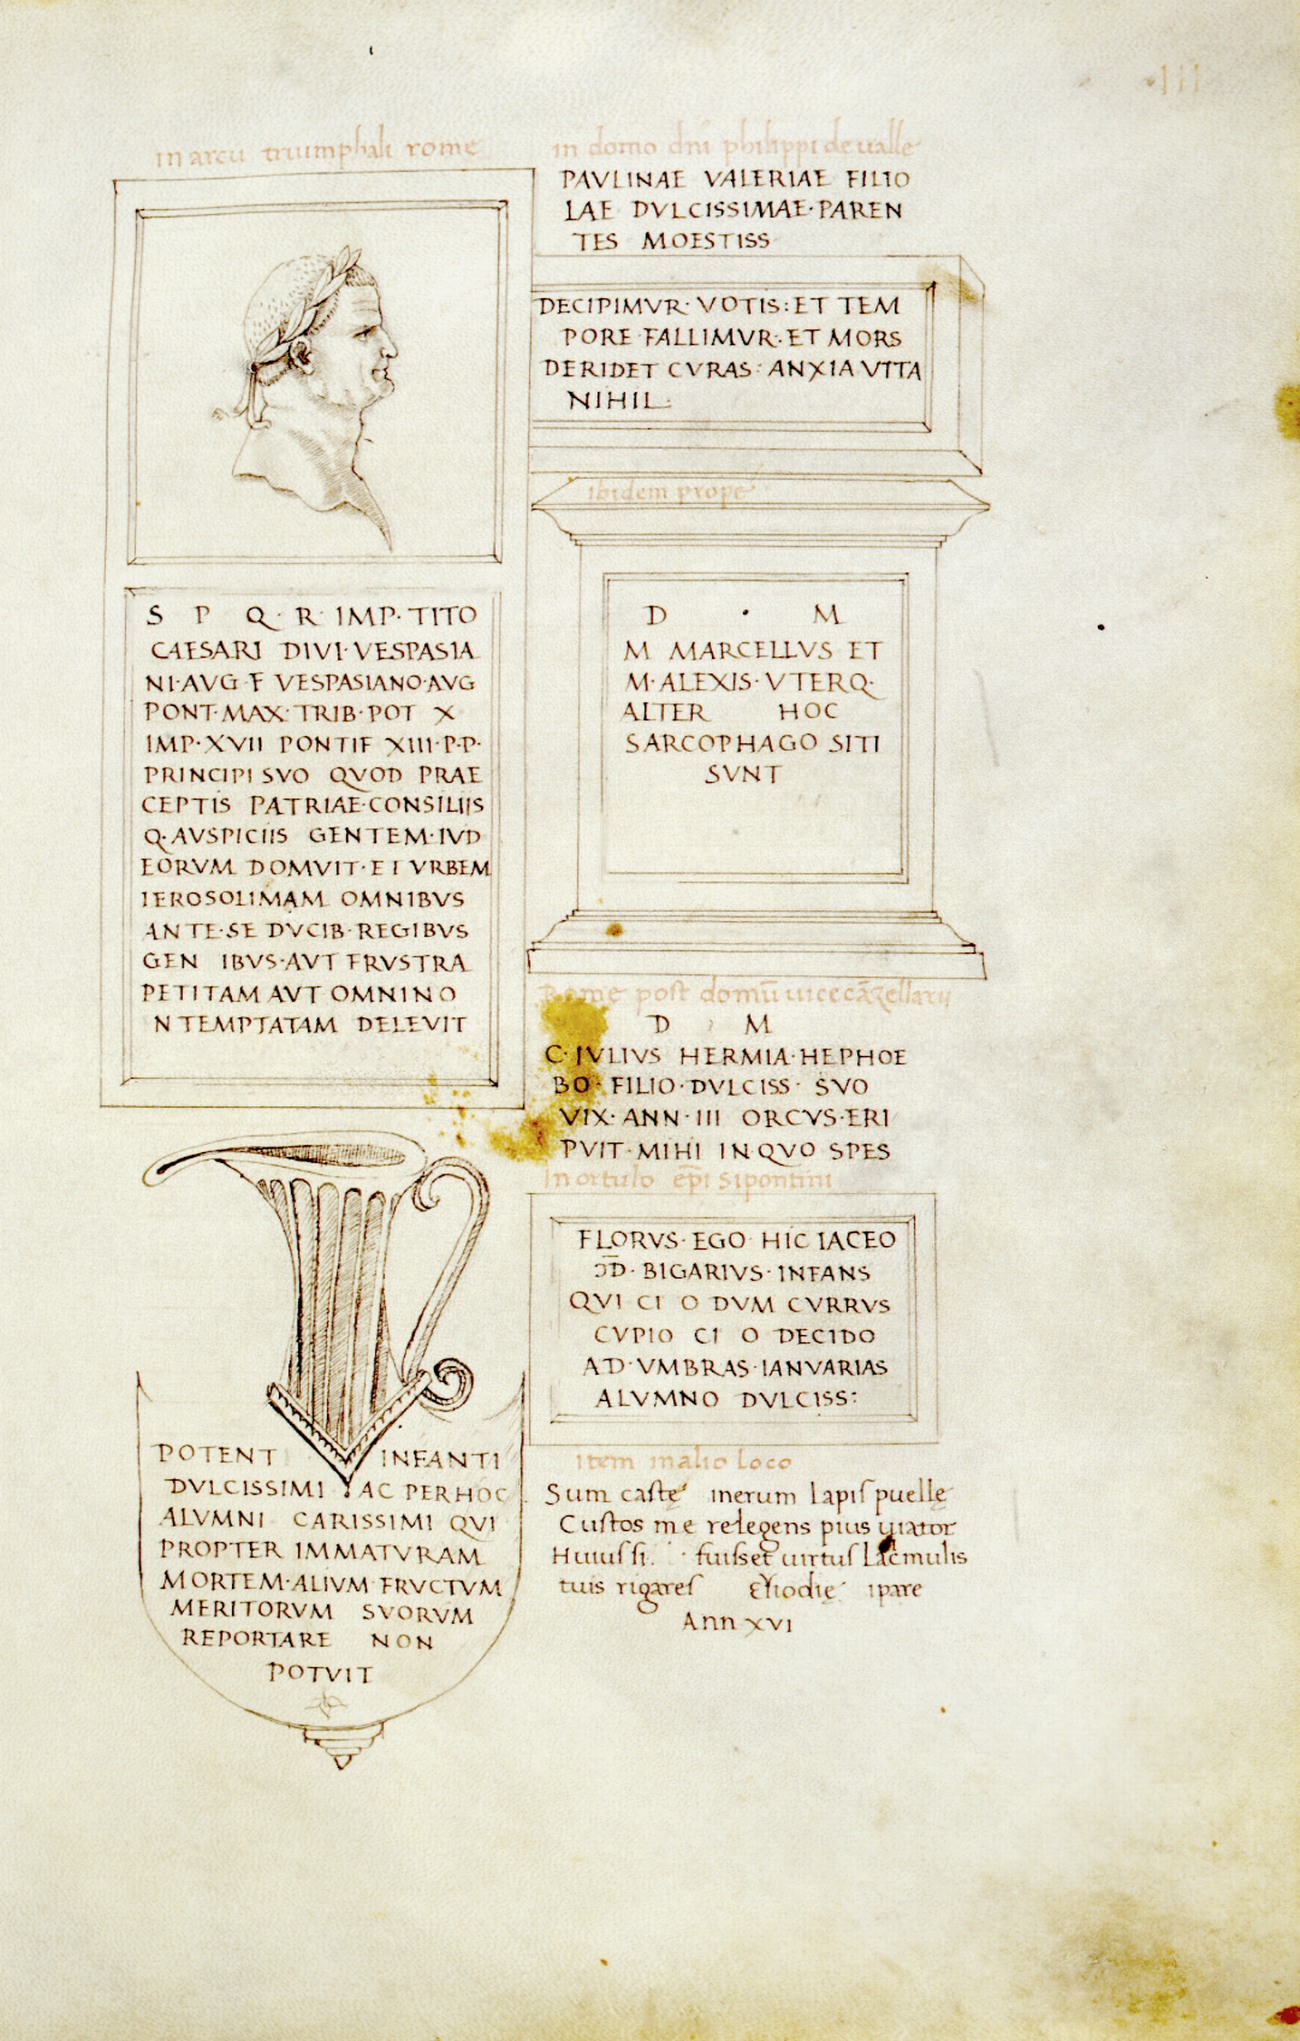 III
in arcu triumphali rome
S P Q· R IMP· TITO
CAESARI DIVI· VESPASIA
NI· AVG F VESPASIANO· AVG
PONT· MAX· TRIB· POT X
IMP· XVII PONTIF XIII· P· P·
PRINCIPI SVO QVOD PRAE
CEPTIS PATRIAE· CONSILIIS
Q· AVSPICIIS GENTEM· IVD
EORVM DOMVIT· ET VRBEM
IEROSOLIMAM OMNIBVS
ANTE· SE DVCIB· REGIBVS
GEN IBVS· AVT FRVSTRA
PETITAM AVT OMNINO
N TEMPTATAM DELEVIT
POTENT INFANTI
DVLCISSIMI AC PER HOC
ALVMNI CARISSIMI QVI
PROPTER IMMATVRAM
MORTEM· ALIVM FRVCTVM
MERITORVM SVORVM
REPORTARE NON
POTVIT
in domo dñi philippi de ualle
PAVLINAE VALERIAE FILIO
LAE DVLCISSIMAE· PAREN
TES MOESTISS
DECIPIMVR· VOTIS: ET TEM
PORE· FALLIMVR· ET MORS
DERIDET CVRAS: ANXIA VITA
NIHIL·
ibidem prope
D · M
M MARCELLVS ET
M· ALEXIS· VTERQ·
ALTER HOC
SARCOPHAGO SITI
SVNT
Rome post domū uicecāzellarii
D M
C· IVLIVS HERMIA· HEPHOE
BO· FILIO· DVLCISS· SVO
VIX· ANN· III ORCVS· ERI
PVIT· MIHI IN QVO SPES
In ortulo ep̄i sipontini
FLORVS· EGO HIC IACEO
ƆD· BIGARIVS· INFANS
QVI CI O DVM CVRRVS
CVPIO CI O DECIDO
AD· VMBRAS· IANVARIAS
ALVMNO DVLCISS:
item in alio loco
Sum castę inerum lapis puellę
Custos me relegens pius uiator
Huius si fuisset uirtus lacmulis
tuis rigares ipare
Ann XVI